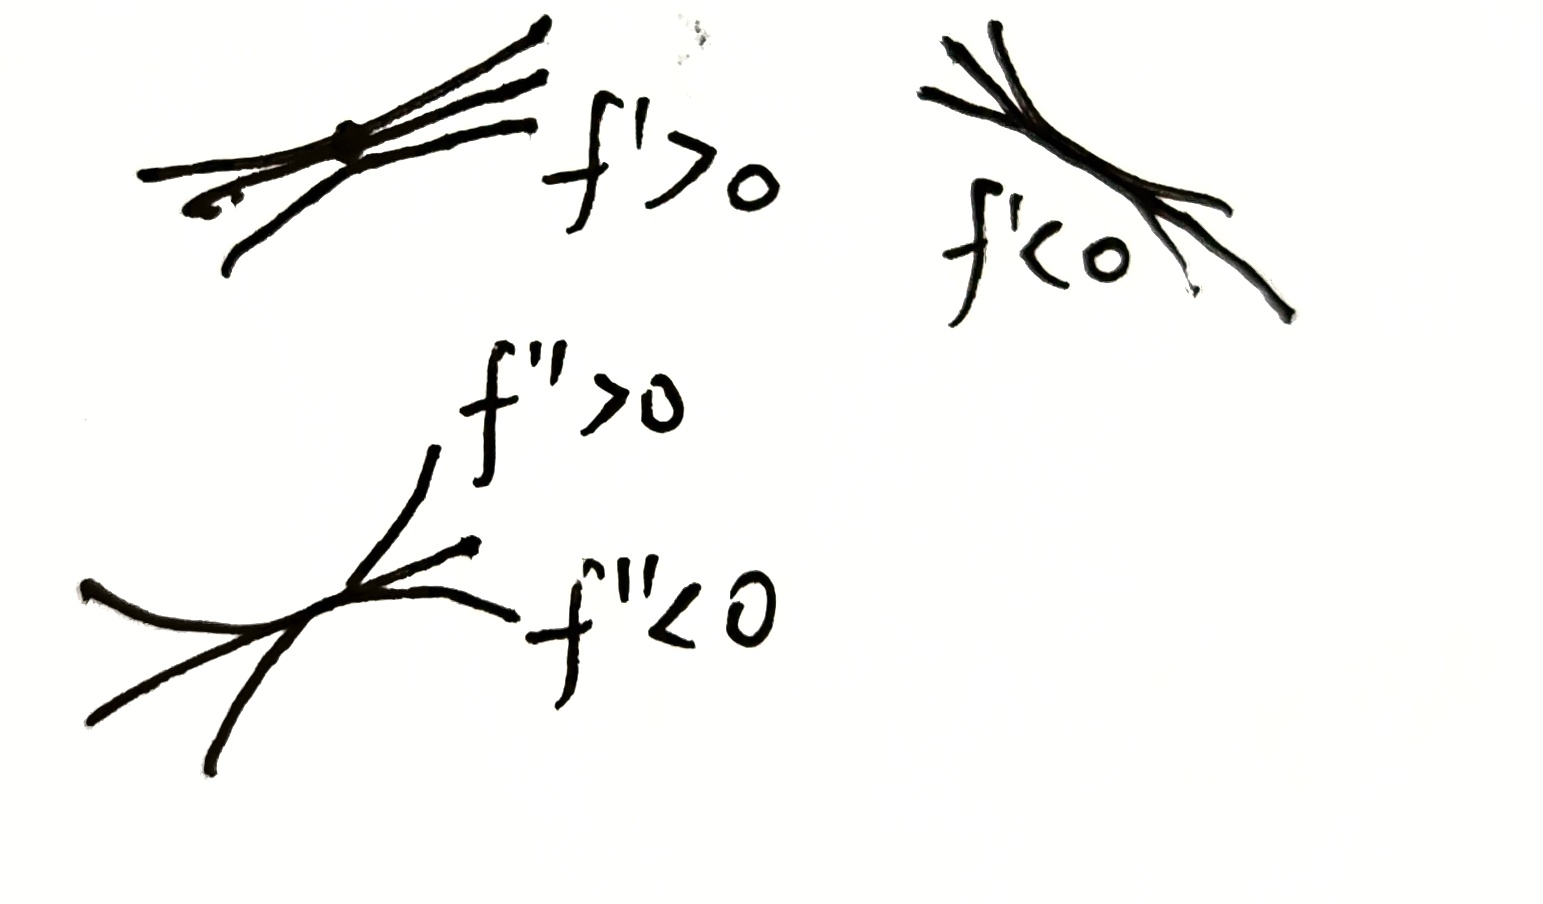 f'>0
f'<0
f''>0
f''<0